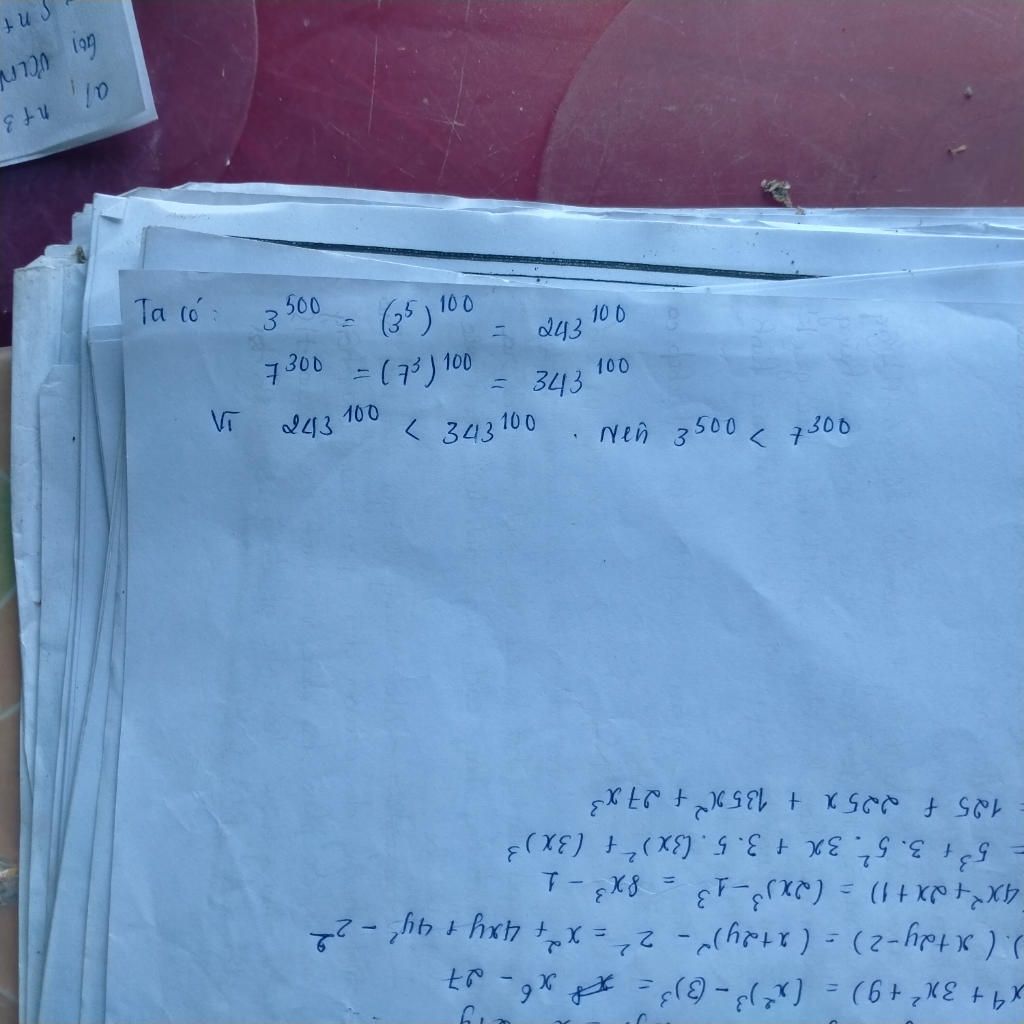 Ta có: 3^500 = (3^5)^100 = 243^100
7^300 = (7^3)^100 = 343^100
Vì 243^100 < 343^100 . Nên 3^500 < 7^300
x^4 + 3x^2 + 9) = (x^2)^3 - (3)^3 = x^6 - 27
). (x+2y-2) = (x+2y)^2 - 2^2 = x^2 + 4xy + 4y^2 - 2^2
4x^2 + 2x + 1) = (2x)^3 - 1^3 = 8x^3 - 1
= 5^3 + 3.5^2.3x + 3.5.(3x)^2 + (3x)^3
= 125 + 225x + 135x^2 + 27x^3
n+3
a)
Gọi ƯCLN
5n+